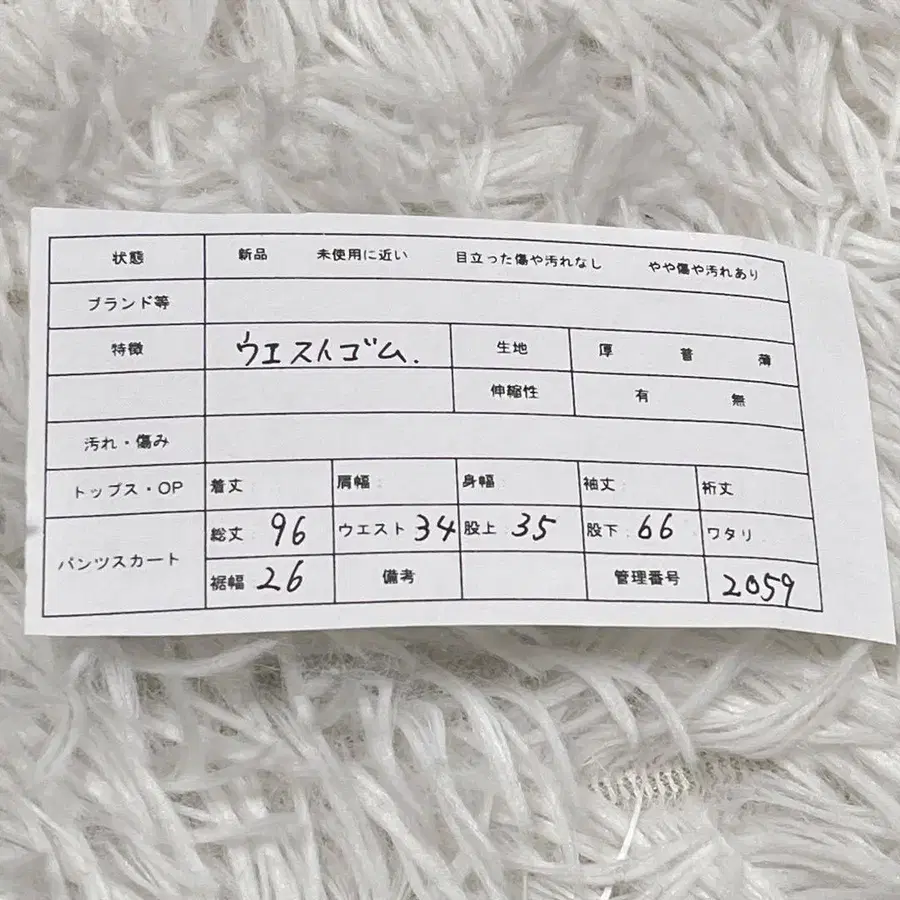 状態 新品 未使用に近い 目立った傷や汚れなし やや傷や汚れあり
ブランド等
特徴 ウエストゴム. 生地 厚 普 薄
伸縮性 有 無
汚れ・傷み
トップス・OP 着丈 肩幅 身幅 袖丈 裄丈
パンツスカート 総丈 96 ウエスト 34 股上 35 股下 66 ワタリ
裾幅 26 備考 管理番号 2059